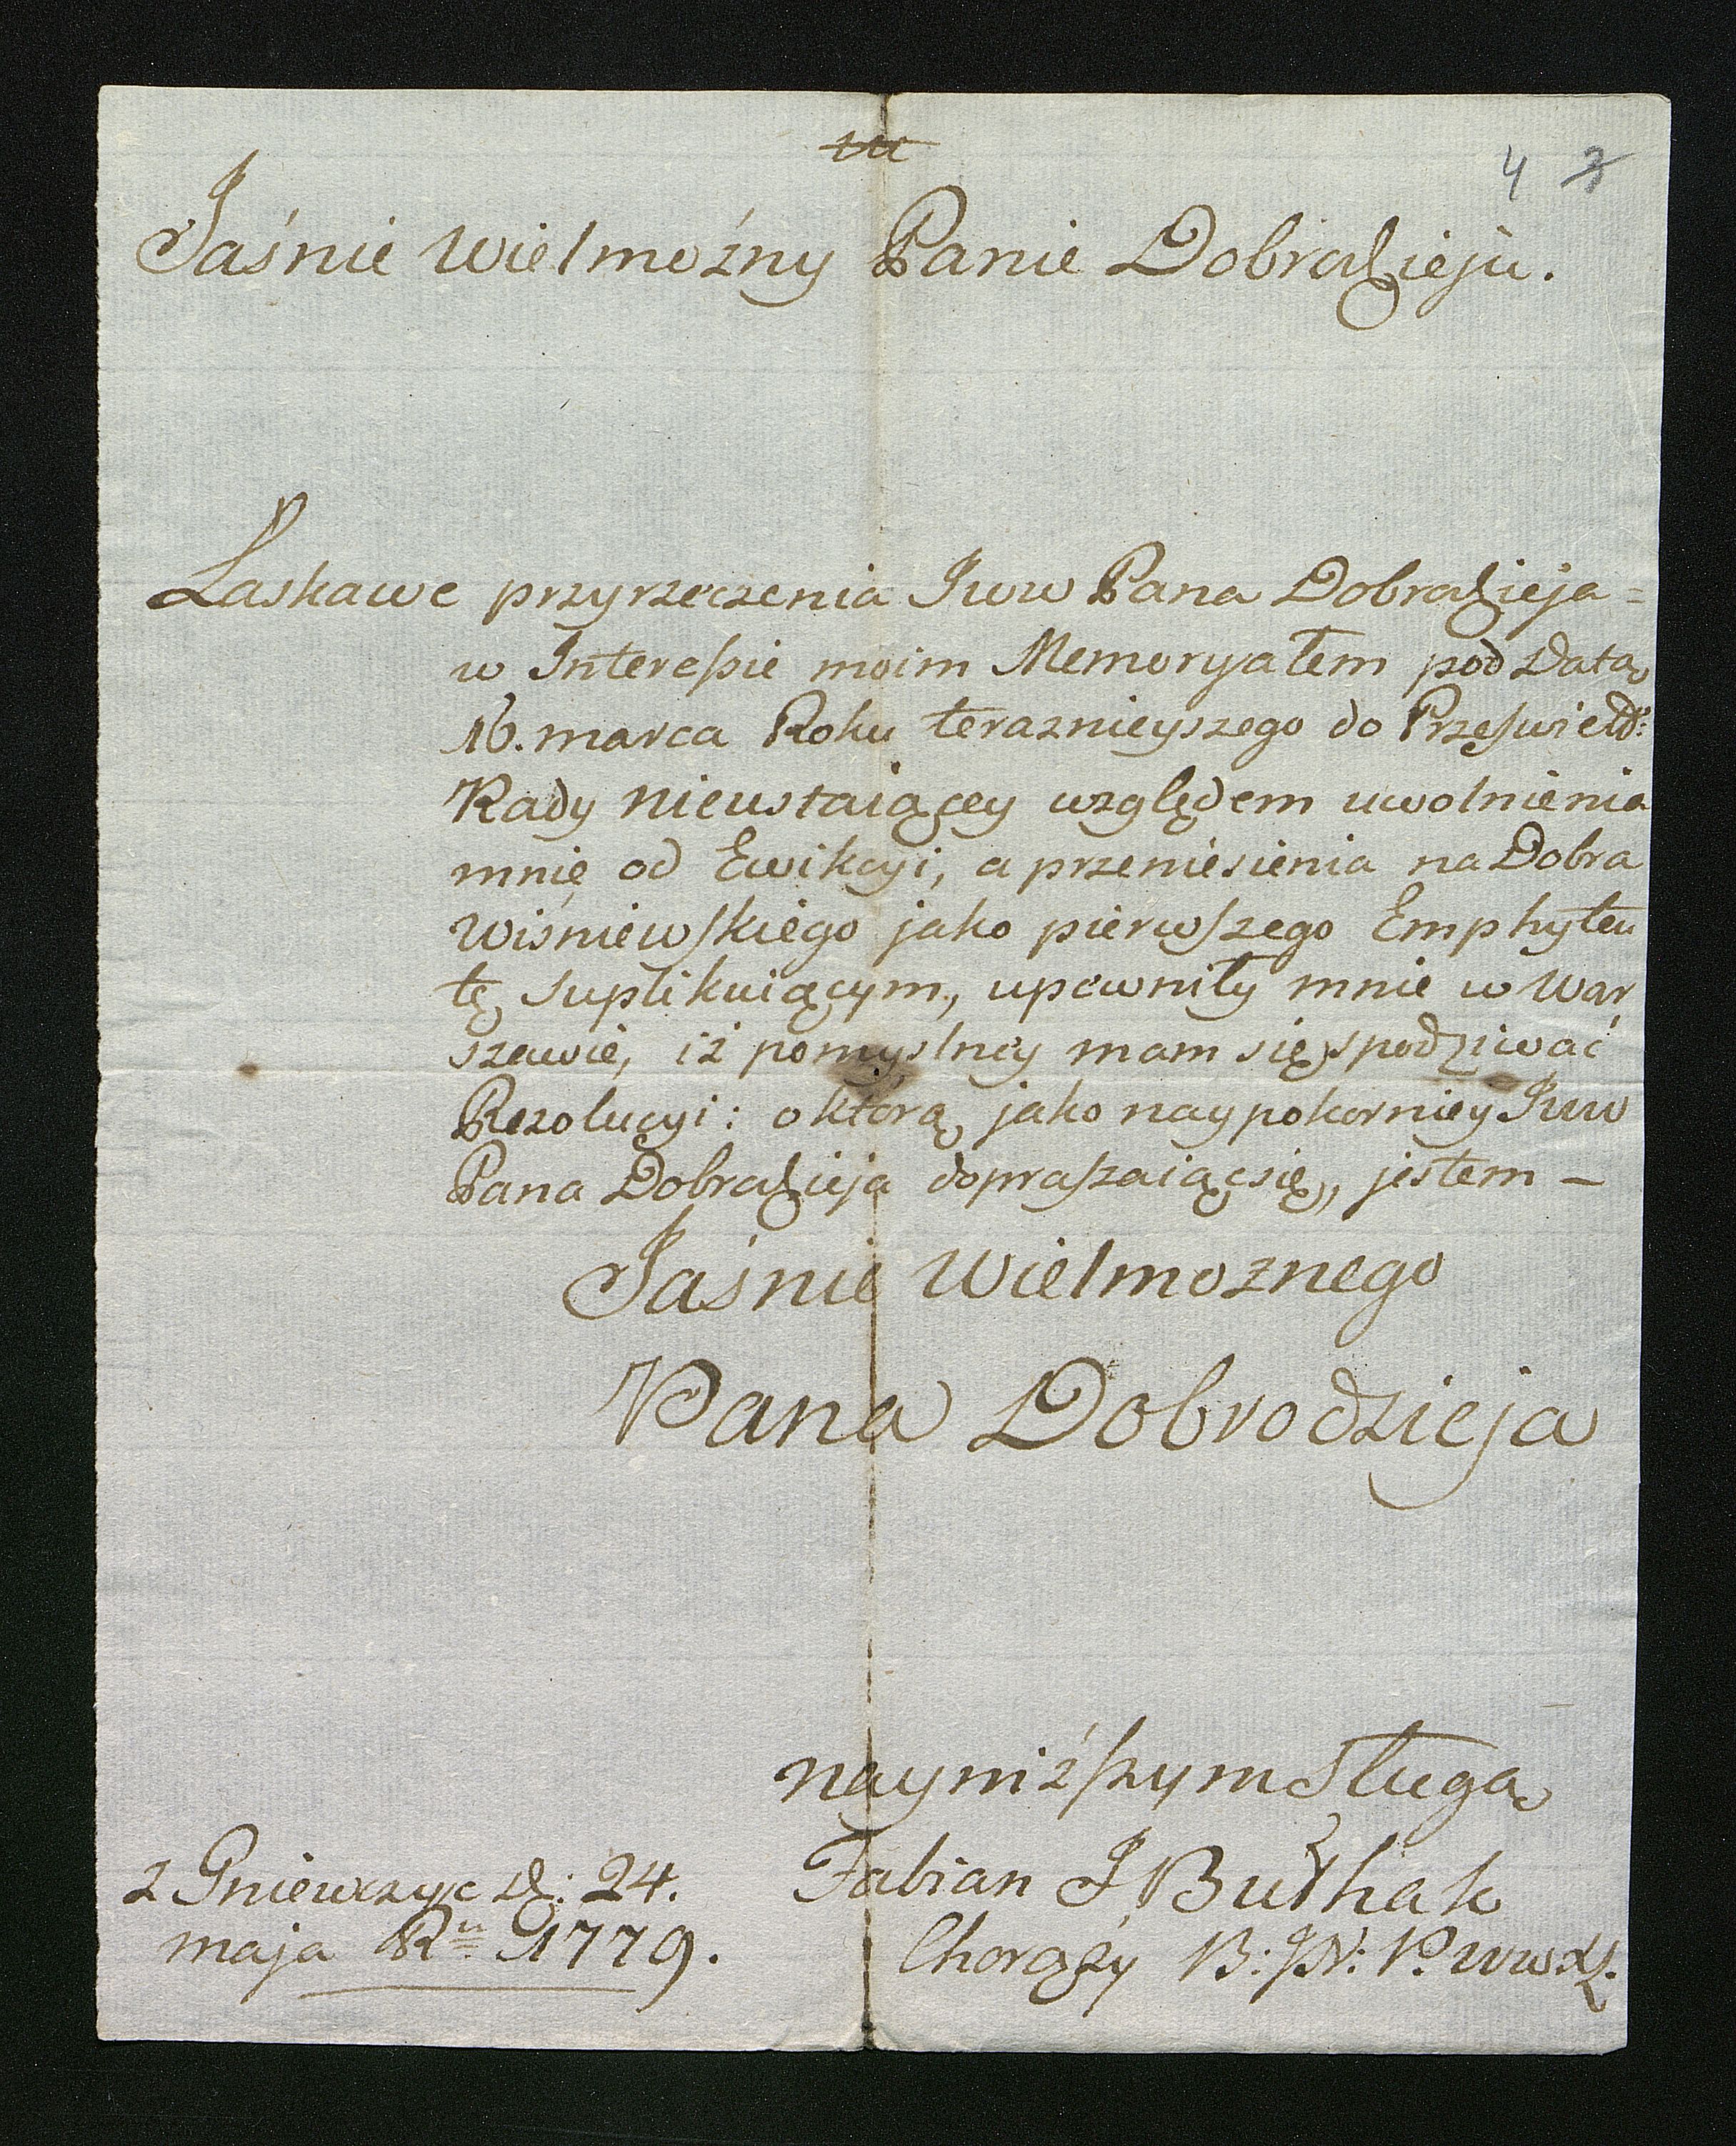 4 3
Jaśnie Wielmożny Panie Dobrodzieju.
Łaskawe przyrzeczenia Jww Pana Dobrodzieja =
w Interessie moim Memoryałem pod Datą
16. marca Roku teraznieyszego do Przeświett:
Rady nieustaiącey względem uwolnienia
mnię od Ewikcyi, a przeniesienia na Dobra
Wiśniewskiego jako pierwszego Emphyteu
tę suplikuiącym, upewniły mnie w War
szawie, iż pomyslney mam się spodziwać
Rezolucyi: o którą jako naypokorniey Jww
Pana Dobrodzieja dopraszaiąc się, jestem —
Jaśnie Wielmoznego
Pana Dobrodzieja
nayniższym Sługą
Fabian J Bułhak
z Gniewczyc d: 24.
maja Ru 1779.
Chorąży B: N: P. wwXL.